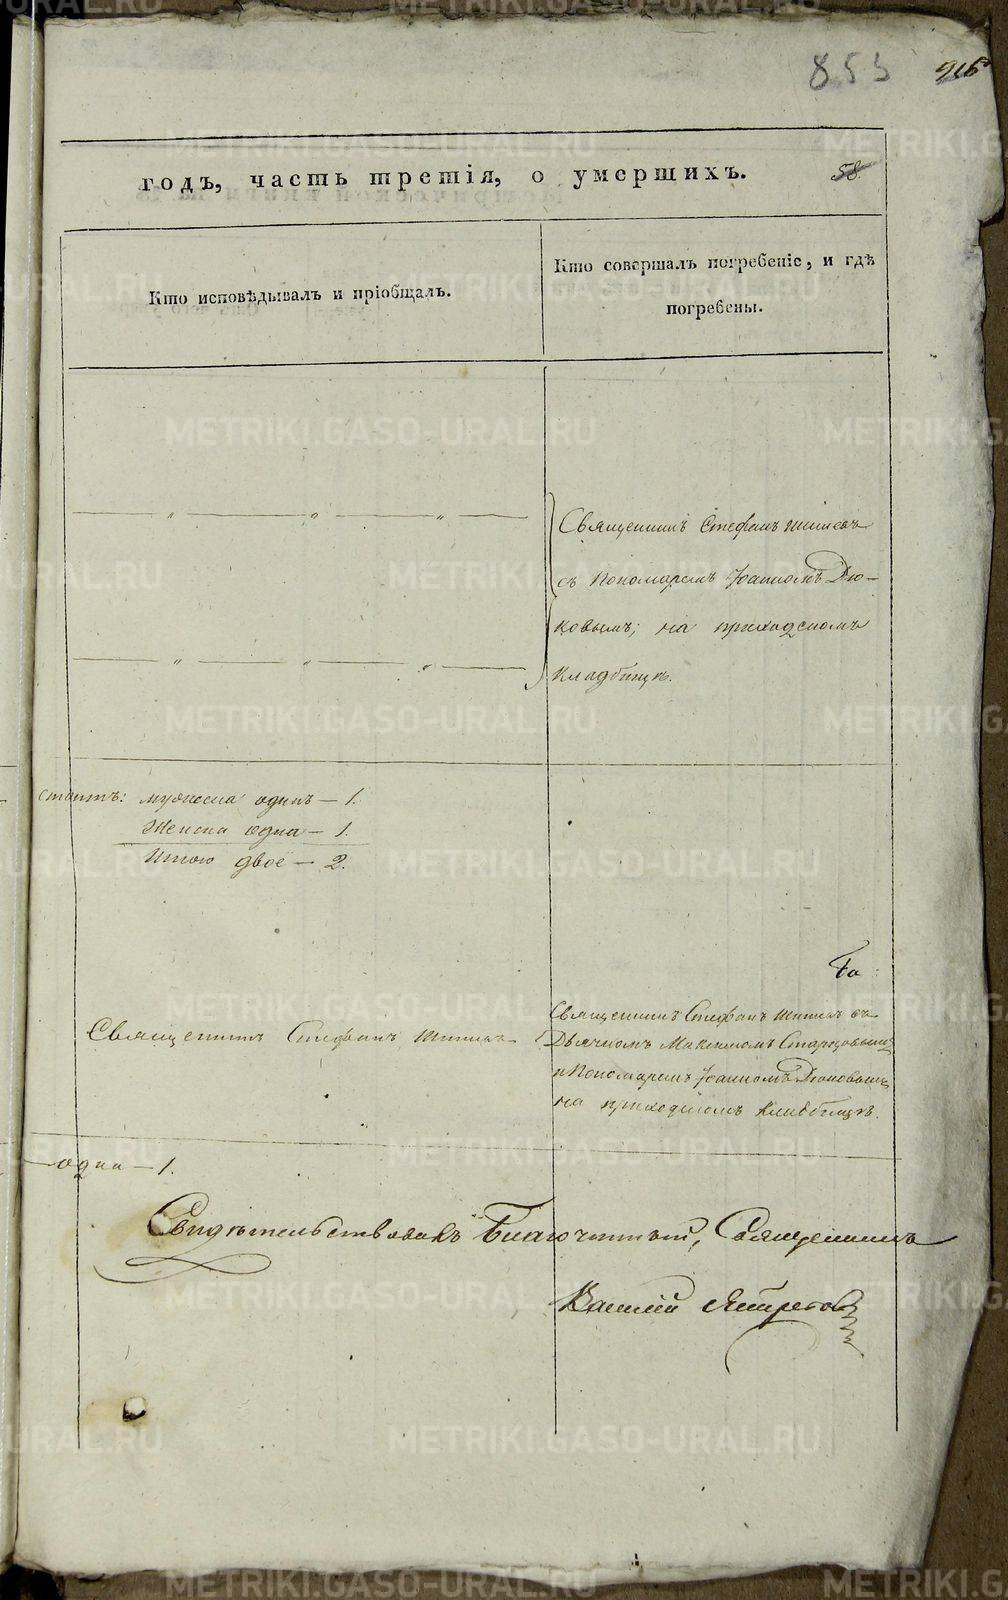 853 916
годъ, часть третія, о умершихъ. 58
Кто исповѣдывалъ и пріобщалъ.
Кто совершалъ погребеніе, и гдѣ
погребены.
Священникъ Стефанъ
съ Пономаремъ Іоанномъ Дю-
ковымъ; на приходскомъ
кладбищѣ.
мужеска одинъ — 1.
Женска одна — 1.
Итого двое — 2.
Священникъ Стефанъ
Священникъ Стефанъ съ
Дьячкомъ Максимомъ Старцовымъ
и Пономаремъ Іоанномъ Дюковымъ
на приходскомъ кладбищѣ.
одна — 1.
Свидѣтельствовалъ Благочинный, Священникъ
Василій
METRIKI.GASO-URAL.RU